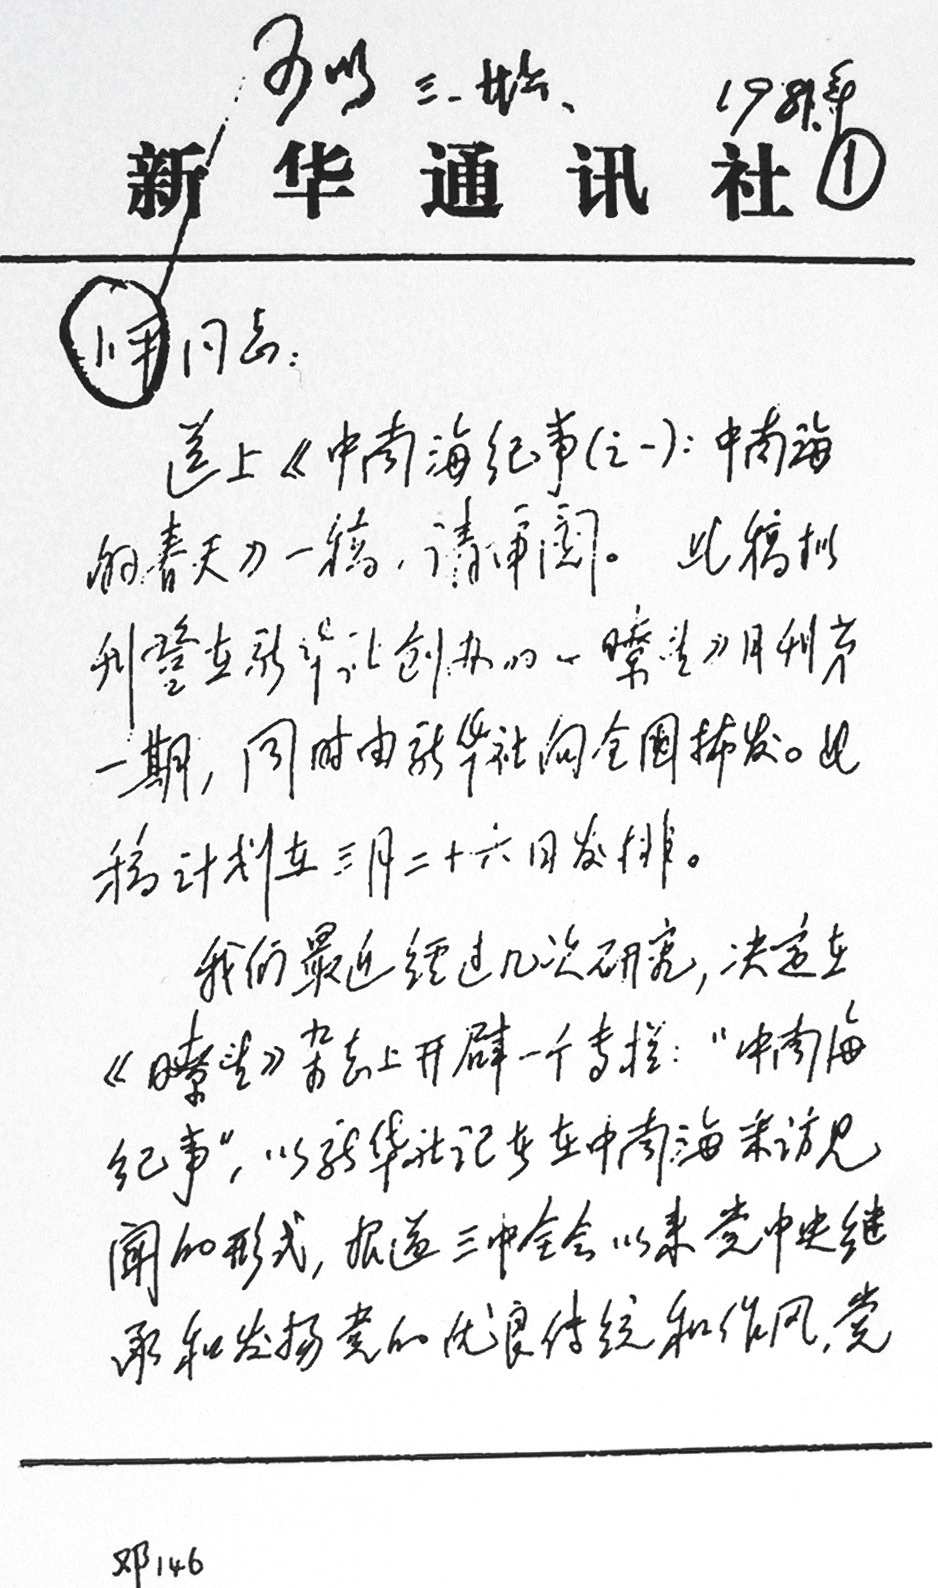 可以 三.廿六、 1981.年
新华通讯社 ①
小平同志：
送上《中南海纪事(之一)：中南海
的春天》一稿，请审阅。此稿拟
刊登在新华社创办的《瞭望》月刊第
一期，同时由新华社向全国播发。此
稿计划在三月二十六日发排。
我们最近经过几次研究，决定在
《瞭望》杂志上开辟一个专栏："中南海
纪事"，以新华社记者在中南海采访见
闻的形式，报道三中全会以来党中央继
承和发扬党的优良传统和作风，党
邓146